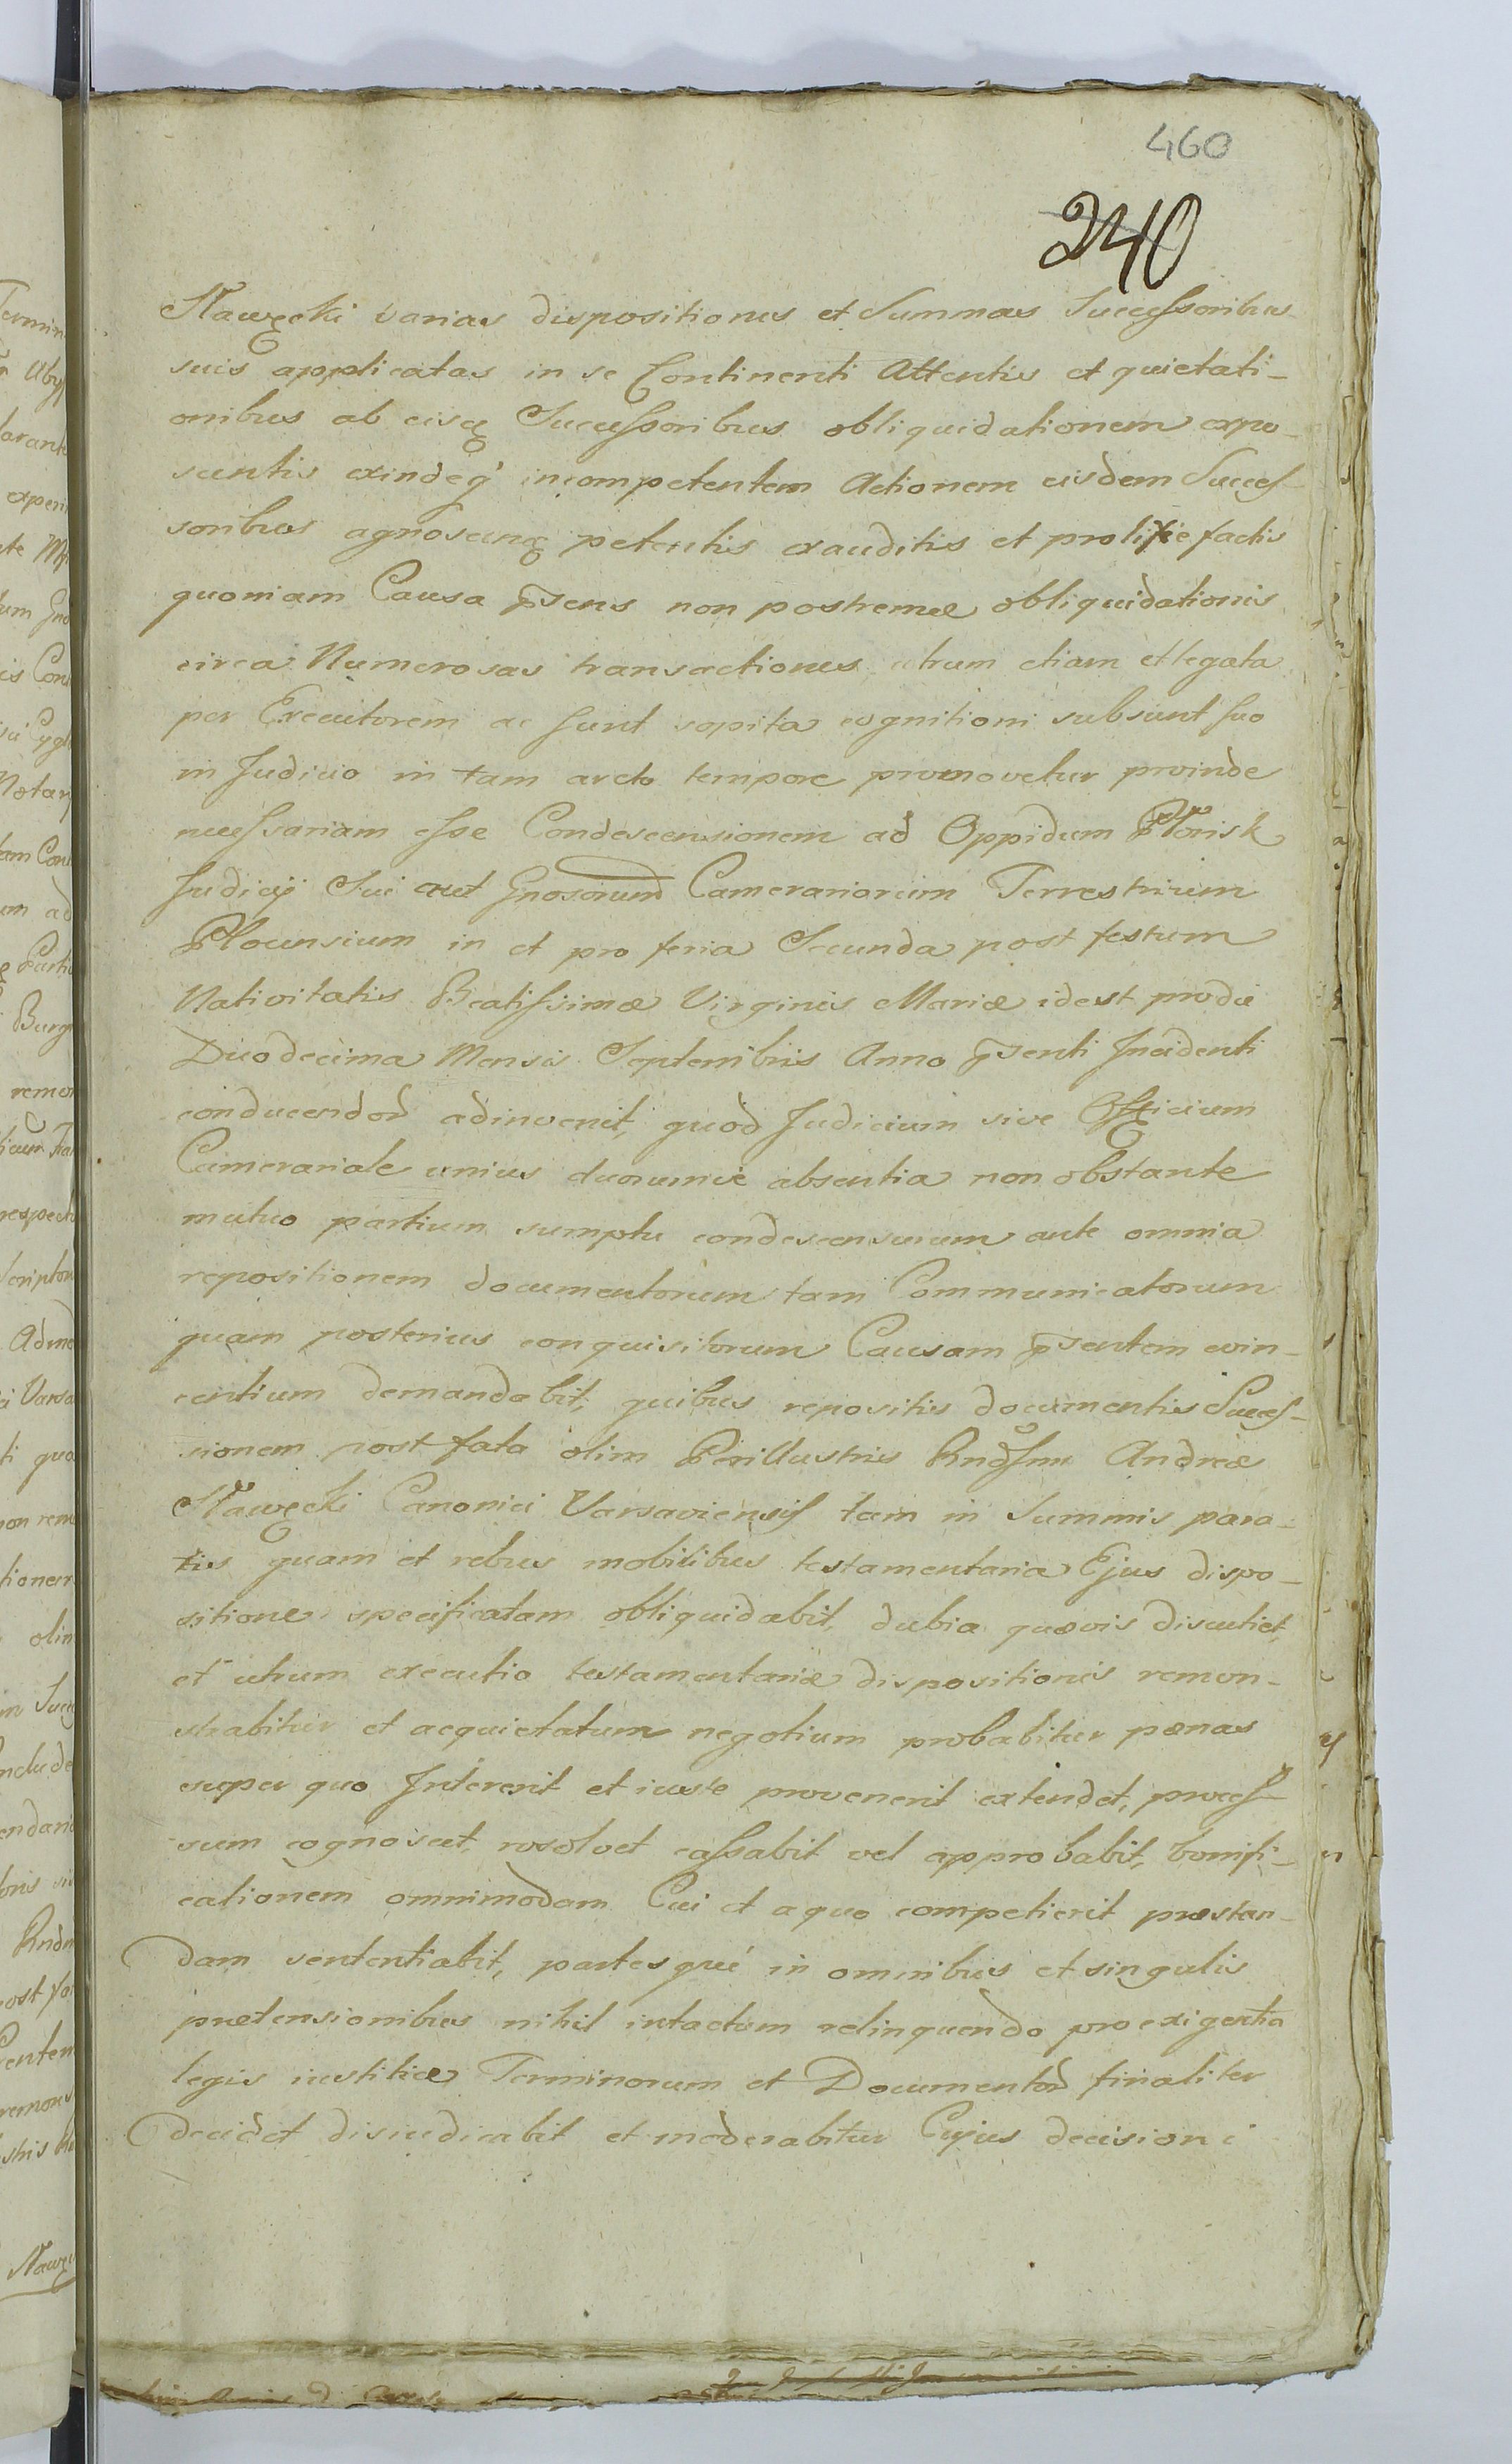 460
240
Nawęcki varias dispositiones et Summas Successoribus
suis applicatas in se Continenti Attentis et quietati-
onibus ab eisq̃ Successoribus obliquidationem expo-
scentis exindeq̃ incompetentem Actionem eisdem Succes-
soribus agnoscing petentis exauditis et prolixie factis
quoniam Causa p̃sens non postremæ obliquidationis
circa Numerosas transactiones utrum etiam et legata
per Executorem ac sunt sopita cognitioni subsunt suo
in Judicio in tam arcto tempore promovetur proinde
necessariam esse Condescensionem ad Oppidum Płonsk
Judicij Sui aut Gnosorum Camerariorum Terrestrium
Plocensium in et pro feria Secunda post festum
Nativitatis Beatissimæ Virginis Mariæ idest pro die
Duodecima Mensis Septembris Anno p̃senti Incidenti
conducendam adinvenit, quod Judicium sive Officium
Camerariale unius duorumve absentia non obstante
mutuo partium sumptu condescensurum ante omnia
repositionem documentorum tam Communicatorum
quam posterius conquisitorum Causam p̃sentem evin-
centium demandabit, quibus repositis documentis Succes-
sionem post fata olim Perillustris Rndssmi Andreæ
Nawęcki Canonici Varsaviensis tam in Summis para-
tis quam et rebus mobilibus testamentaria Ejus dispo-
sitione specificatam obliquidabit, dubia quævis discutiet,
et utrum executio testamentariæ dispositionis remon-
strabitur et acquietatum negotium probabitur pænas
super quo Intererit et iuste provenerit extendet, proces-
sum cognoscet, resolvet cassabit vel approbabit, bonifi-
cationem omnimodam Cui et a quo competierit præstan-
dam sententiabit, partesque in omnibus et singulis
prætensionibus nihil intactum relinquendo pro exigentia
legis iustitiæ Terminorum et Documentorũ finaliter
decidet disiudicabit et moderabitur Cujus decisioni